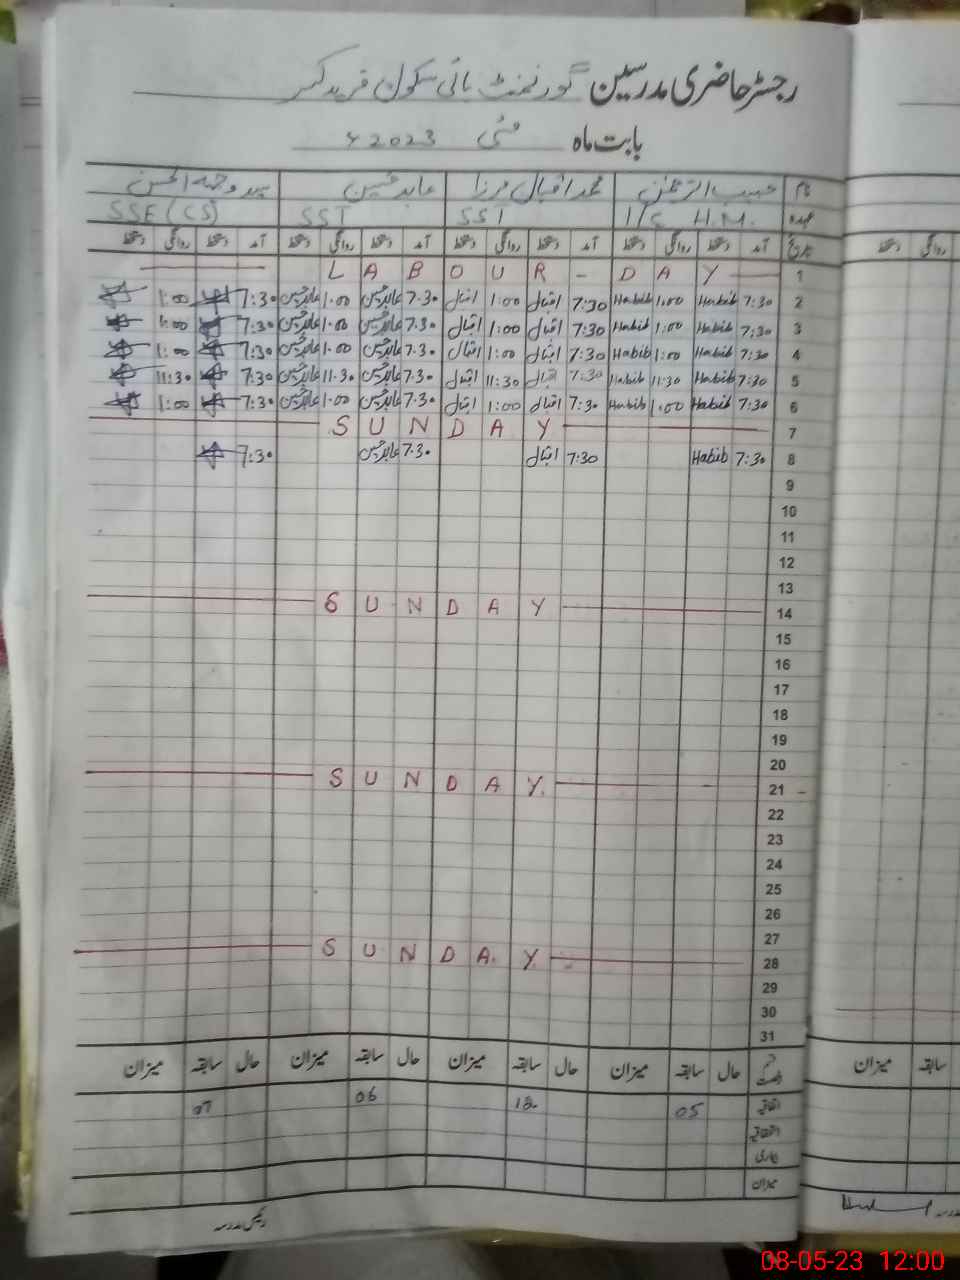 رجسٹر حاضری مدرسین گورنمنٹ ہائی سکول فرید کسر
بابت ماہ مئی 2023ء
نام حبیب الرحمٰن محمد اقبال مرزا عابد حسین سید وجیہ الحسن
عہدہ I/C H.M. SST SST SSE (CS)
تاریخ آمد دستخط روانگی دستخط آمد دستخط روانگی دستخط آمد دستخط روانگی دستخط آمد دستخط روانگی دستخط
1 LABOUR - DAY
2 7:30 Habib 1:00 Habib 7:30 اقبال 1:00 اقبال 7.30 عابد حسین 1.00 عابد حسین 7:30 1:00
3 7:30 Habib 1:00 Habib 7:30 اقبال 1:00 اقبال 7.30 عابد حسین 1.00 عابد حسین 7:30 1:00
4 7:30 Habib 1:00 Habib 7:30 اقبال 1:00 اقبال 7.30 عابد حسین 1.00 عابد حسین 7:30 1:00
5 7:30 Habib 11:30 Habib 7:30 اقبال 11:30 اقبال 7.30 عابد حسین 11.30 عابد حسین 7:30 11:30
6 7:30 Habib 1:00 Habib 7:30 اقبال 1:00 اقبال 7.30 عابد حسین 1.00 عابد حسین 7:30 1:00
7 SUNDAY
8 7:30 Habib 7:30 اقبال 7.30 عابد حسین 7:30
9
10
11
12
13
14 SUNDAY
15
16
17
18
19
20
21 SUNDAY
22
23
24
25
26
27
28 SUNDAY
29
30
31
حال سابقہ میزان حال سابقہ میزان حال سابقہ میزان حال سابقہ میزان
اتفاقیہ 05 12 06 07
استحقاقیہ
بیماری
میزان
رئیس مدرسہ
روانگی دستخط
سابقہ میزان
08-05-23 12:00